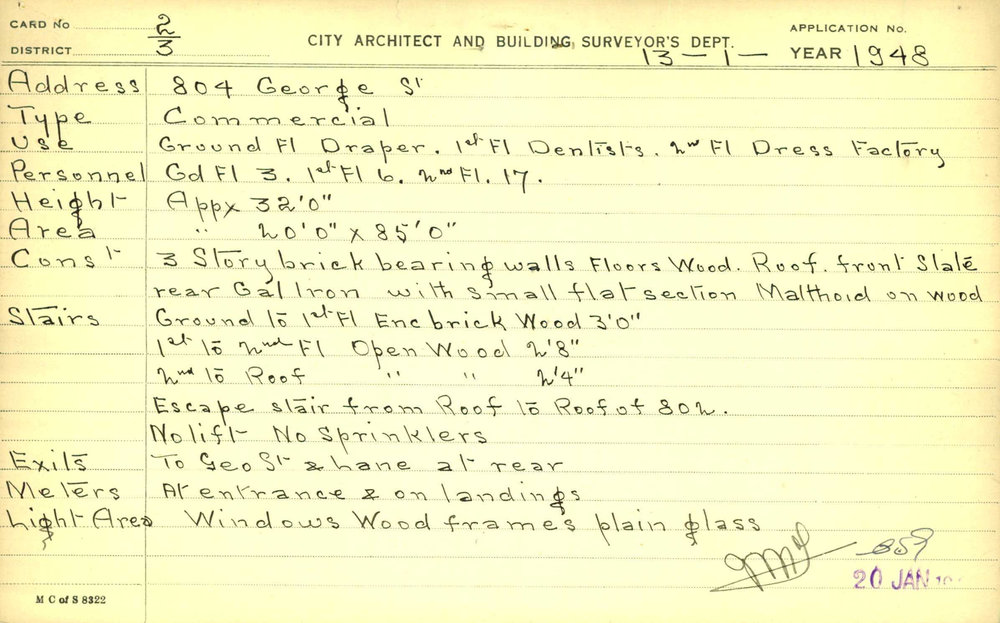 CARD No 2/3
DISTRICT
CITY ARCHITECT AND BUILDING SURVEYOR'S DEPT.
APPLICATION No.
13 - 1 - YEAR 1948
Address 804 George St
Type Commercial
Use Ground Fl Draper. 1st Fl Dentists. 2nd Fl Dress Factory
Personnel Gd Fl 3. 1st Fl 6. 2nd Fl. 17.
Height Appx 32'0"
Area " 20'0" x 85'0"
Const 3 Story brick bearing walls Floors Wood. Roof. front Slate
rear Gal Iron with small flat section Malthoid on wood
Stairs Ground to 1st Fl Enc brick Wood 3'0"
1st to 2nd Fl Open Wood 2'8"
2nd to Roof " " 2'4"
Escape stair from Roof to Roof of 802.
No lift No Sprinklers
Exits To Geo St & Lane at rear
Meters At entrance & on landings
Light Area Windows Wood frames plain glass
859
20 JAN
M C of S 8322